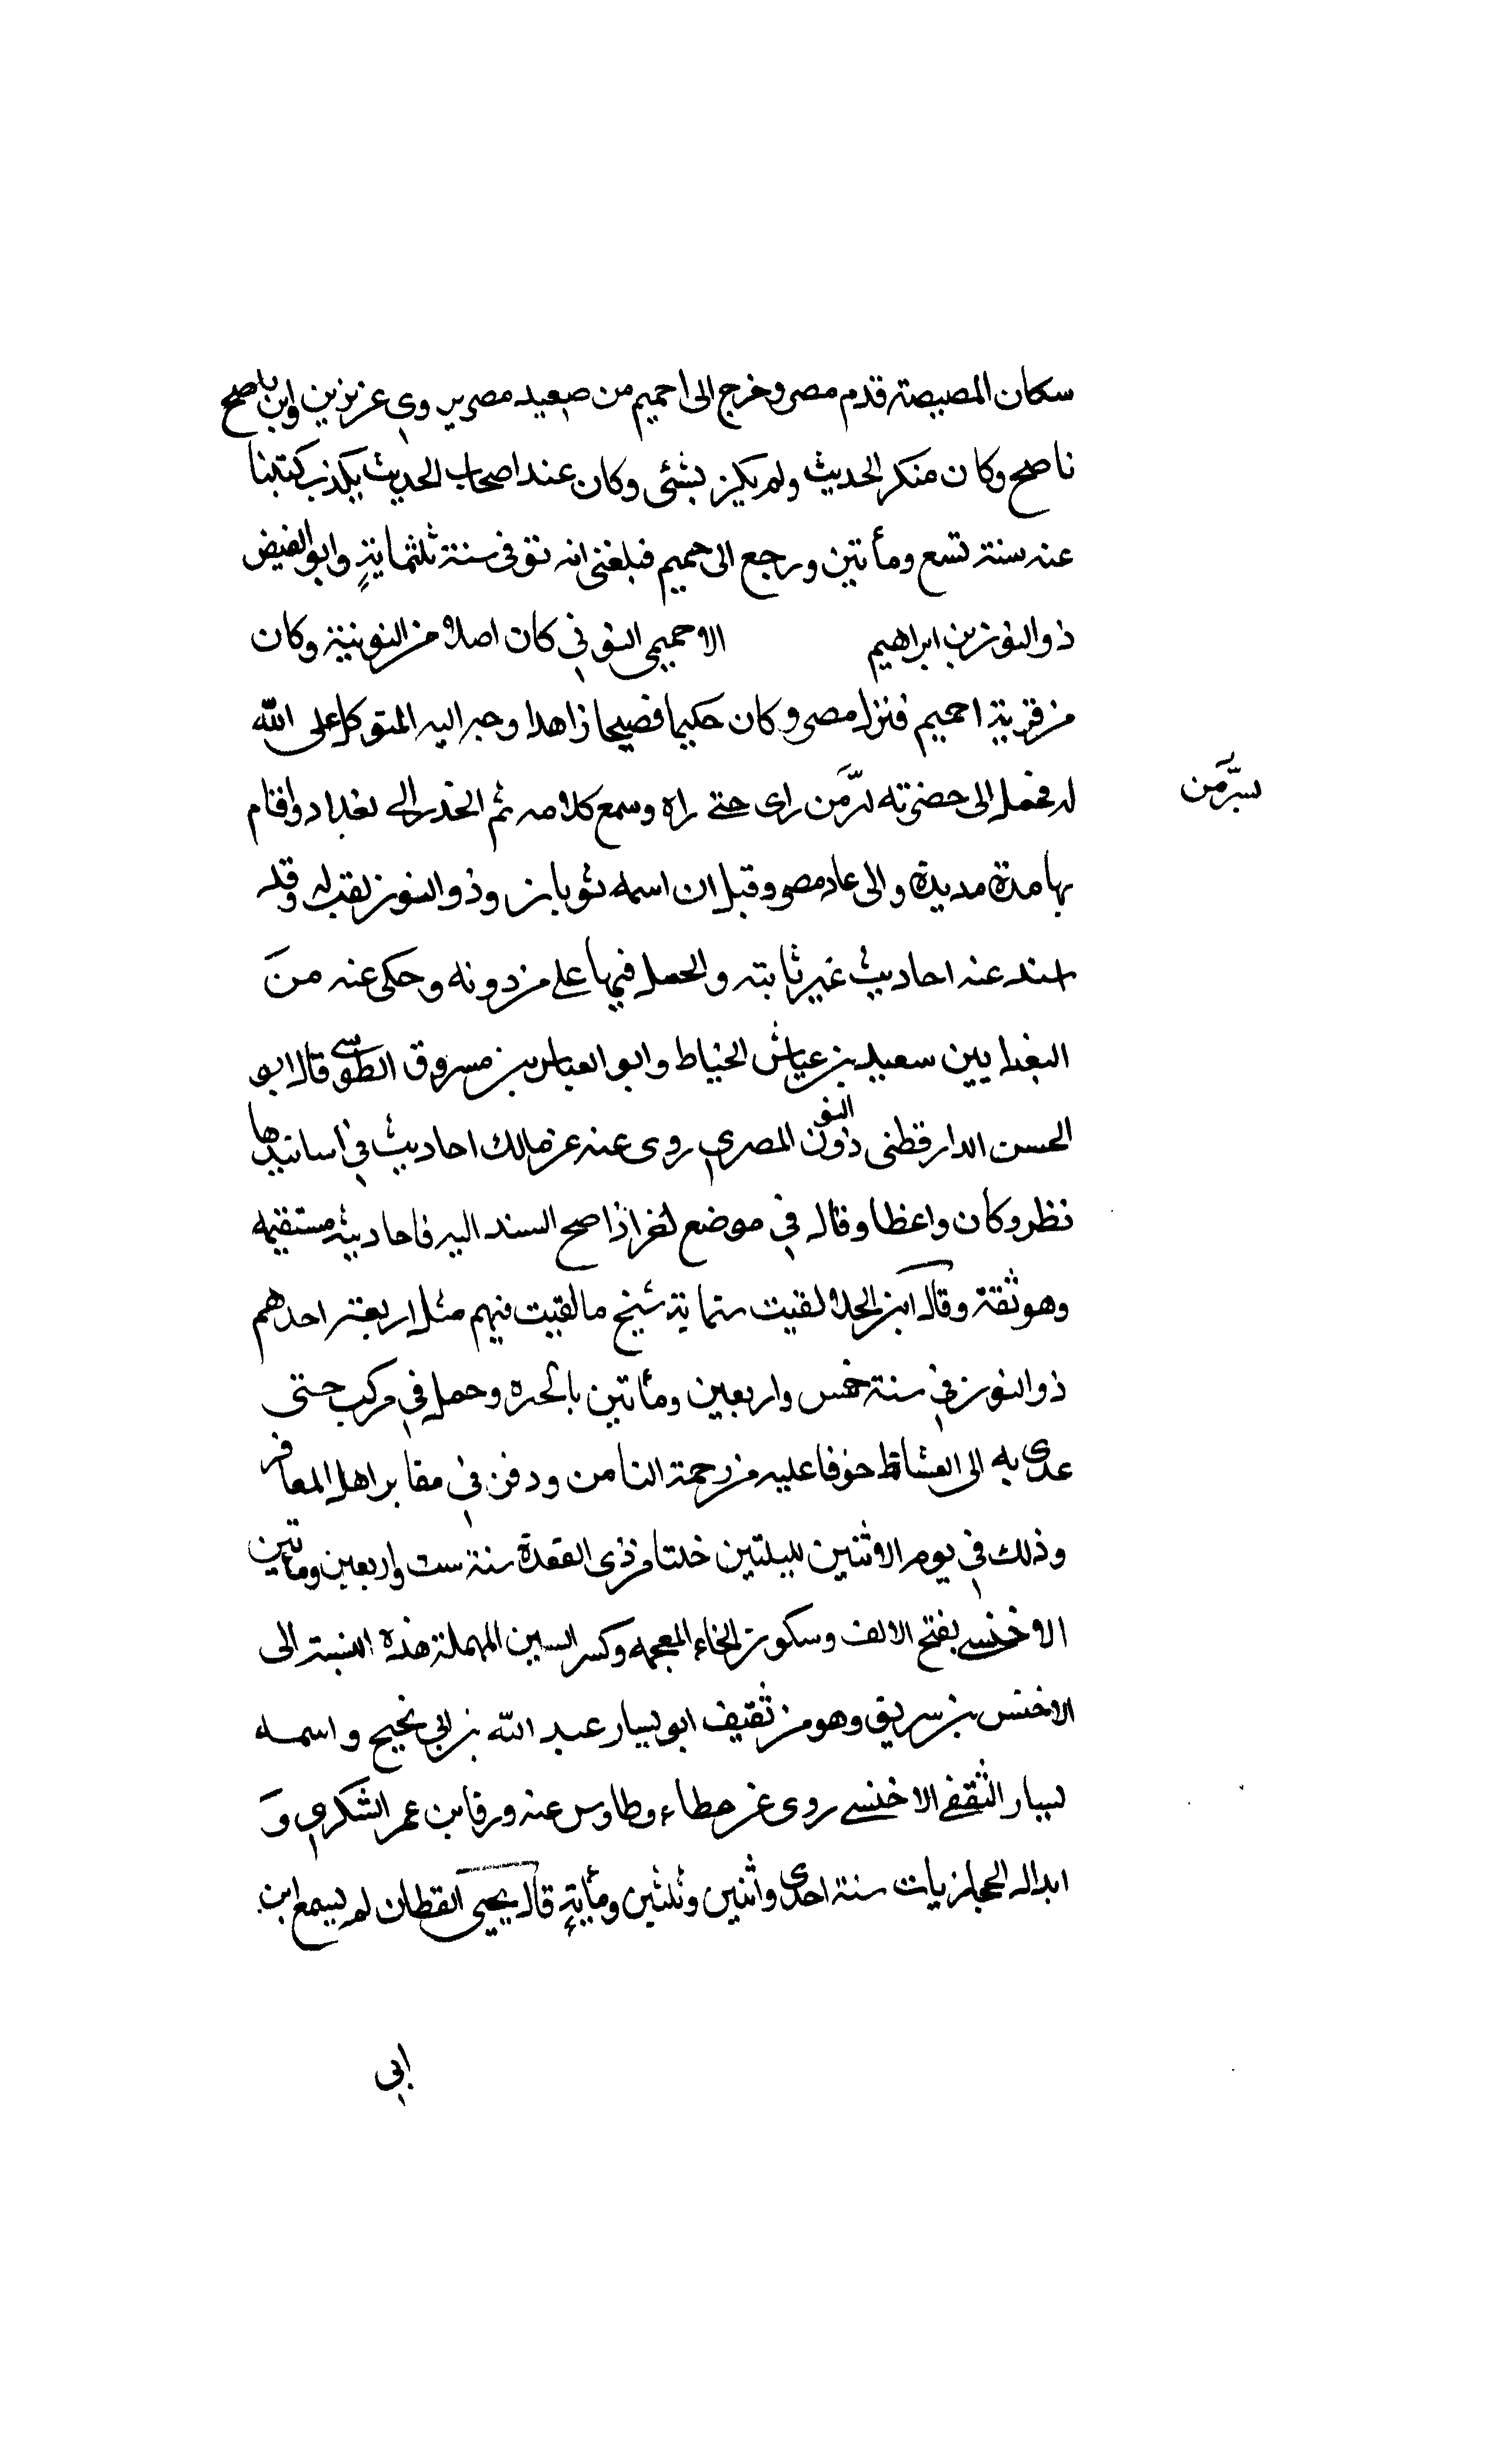 سكان المصيصة قدم مصر وخرج الى احميم من صعيد مصر يروى عن يزيد بن وابن ناصح
ناصح وكان منكر الحديث ولم يكن بشئ وكان عند اصحاب الحديث يكذب كتبنا
عنه سنة تسع ومأتين ورجع الى حميم فبلغنى انه توفى سنة ثلثماية وابو الفيض
ذو النون بن ابراهيم الاحميمى النوني كان اصلا من النوبية وكان
من قرية احميم فنزل مصر وكان حكيما فصيحا زاهدا وجه اليه المتوكل على الله
له فحمل الى حضرته لرَّمَن راى حتى راه وسمع كلامه ثم انحدر الى بغداد واقام
سُرَّمَن
بها مدة مديدة والى عاد مصر وقيل ان اسمه ثوبان وذو النون لقب له وقد
اسند عنه احاديث غير ثابتة والحمل فيها على من دونه وحكى عنه منَ
البغدايين سعيد بن عياش الخياط وابو العباس بن مسروق الطوسى قال ابو
الحسن الدارقطنى ذو النون المصري روى عنه عن مالك احاديث في اسانيدها
نظر وكان واعظا وقال في موضع اخر اذا صح السند اليه فاحاديثه مستقيمه
وهو ثقة وقال ابن الجلا لقيت ستماية شيخ ما لقيت فيهم مثل اربعة احدهم
ذو النون في سنة خمس واربعين ومأتين بالحره وحمل في مركب حتى
عدى به الى الفسطاط خوفا عليه من رحمة الناس ودفن في مقابر اهل المعافر
وذلك في يوم الاثنين لليلتين خلتا من ذى القعدة سنة ست واربعين ومأتين
الاخنسى بفتح الالف وسكون الخاء المعجمه وكسر السين المهملة هذه النسبة الى
الاخنس بن سريق وهو من ثقيف ابو يسار عبد الله بن ابى نجيح واسمه
يسار الثقفى الاخنسى روى عن عطاء وطاوس عنه ورقا بن عمر الشكري وَ
سنة احدى واثنين وثلثين ومأية قال يحيى القطان لم يسمع ابن
ابي